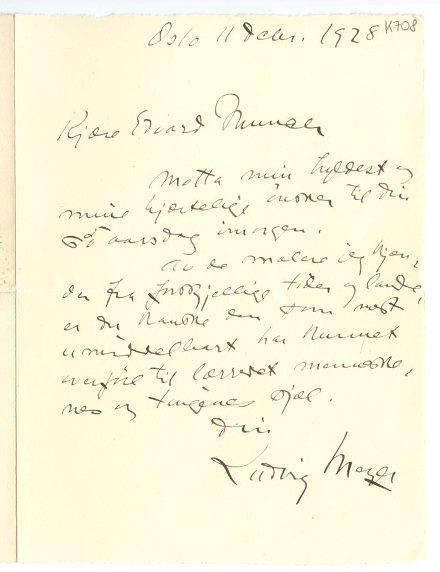 Oslo 11 decbr. 1928 K708
Kjære Edvard Munch
Motta min hyldest og
mine hjertelige ønsker til din
65 aarsdag imorgen.
Av de malere jeg kjen,
der fra forskjellige tider og lande,
er du kanske den som mest
umiddelbart har kunnet
overføre til lærretet menneske,
nes og tingenes sjæl.
Din
Ludvig Meyer